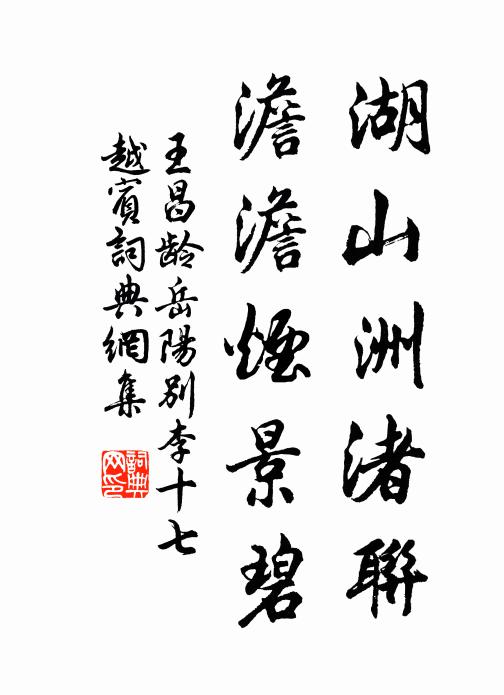 湖山洲渚聯
澹澹煙景碧
王昌龄岳陽別李十七
越賓詞典網集
詞典網印